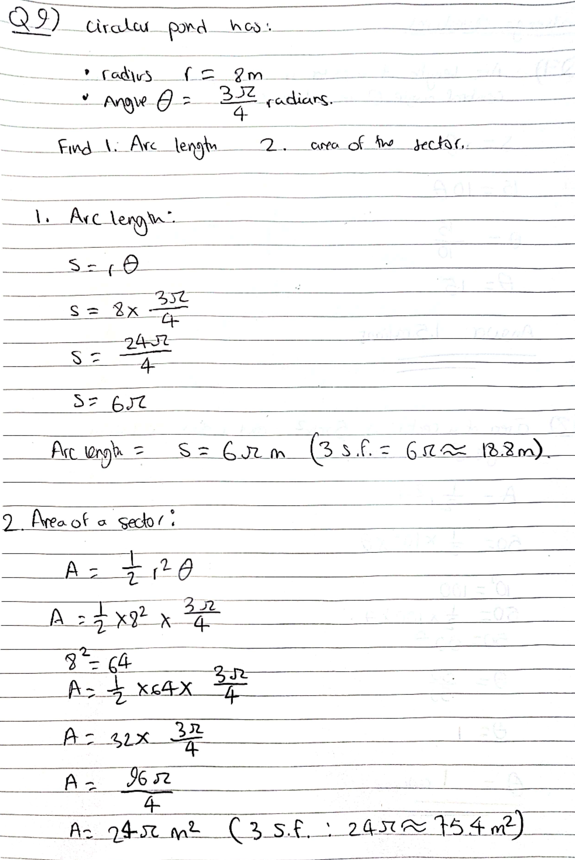 Q9) Circular pond has:
• radius r = 8m
• Angle θ = 3π/4 radians.
Find 1. Arc length 2. area of the sector.
1. Arc length:
S = r θ
S = 8 × 3π/4
S = 24π/4
S = 6π
Arc length = S = 6π m (3 s.f. = 6π ≈ 18.8m).
2. Area of a sector:
A = 1/2 r² θ
A = 1/2 × 8² × 3π/4
8² = 64
A = 1/2 × 64 × 3π/4
A = 32 × 3π/4
A = 96π/4
A = 24π m² (3 s.f. : 24π ≈ 75.4 m²)